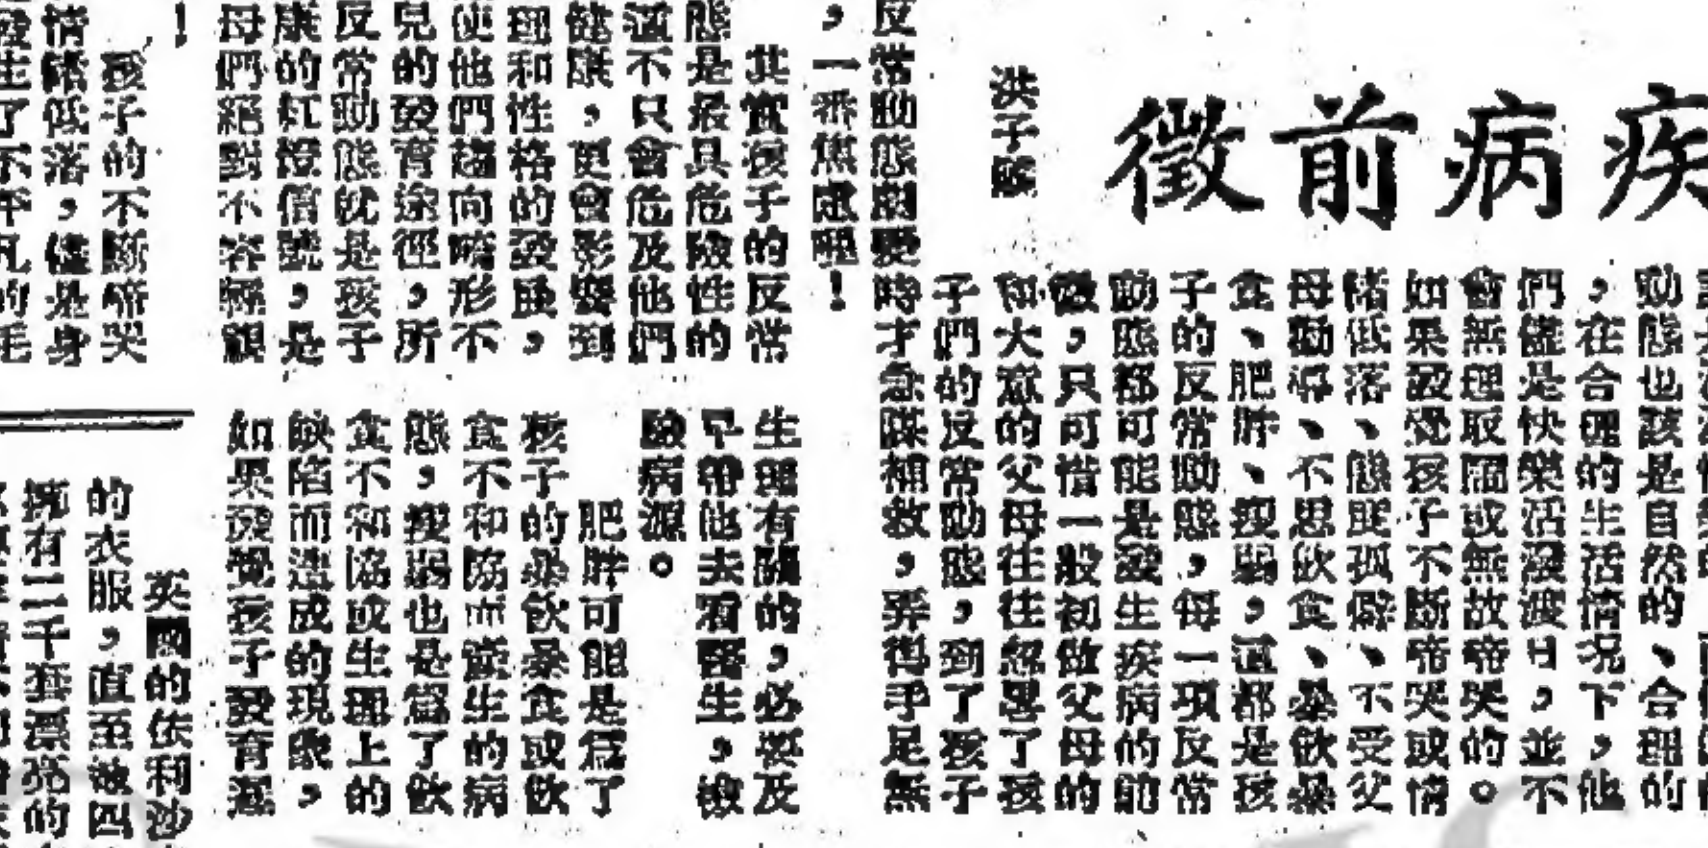 疾病前徵
洪子
動態也該是自然的、合理的
，在合理的生活情況下，他
們儘是快樂活潑渡日，並不
會無理取鬧或無故啼哭的。
如果發覺孩子不斷啼哭或情
緒低落、態度孤僻、不受父
母勸導、不思飲食、暴飲暴
食、肥胖、瘦弱，這都是孩
子的反常動態，每一項反常
動態都可能是發生疾病的前
徵，只可惜一般初做父母的
和大意的父母往往忽畧了孩
子們的反常動態，到了孩子
反常動態劇變時才急謀補救，弄得手足無
，一番焦慮哩！
其實孩子的反常
態是最具危險性的
這不只會危及他們
健康，更會影響到
理和性格的發展，
使他們趨向畸形不
兒的發育途徑，所
反常動態就是孩子
康的紅燈信號，是
母們絕對不容輕視
！
孩子的不斷啼哭
情緒低落，儘是身
發生了不平凡的毛
生理有關的，必要及
早帶他去看醫生，檢
驗病源。
肥胖可能是為了
孩子的暴飲暴食或飲
食不和協而產生的病
態，瘦弱也是為了飲
食不和協或生理上的
缺陷而造成的現象，
如果發覺孩子發育遲
英國的依利沙
的衣服，直至被四
擁有二千套漂亮的